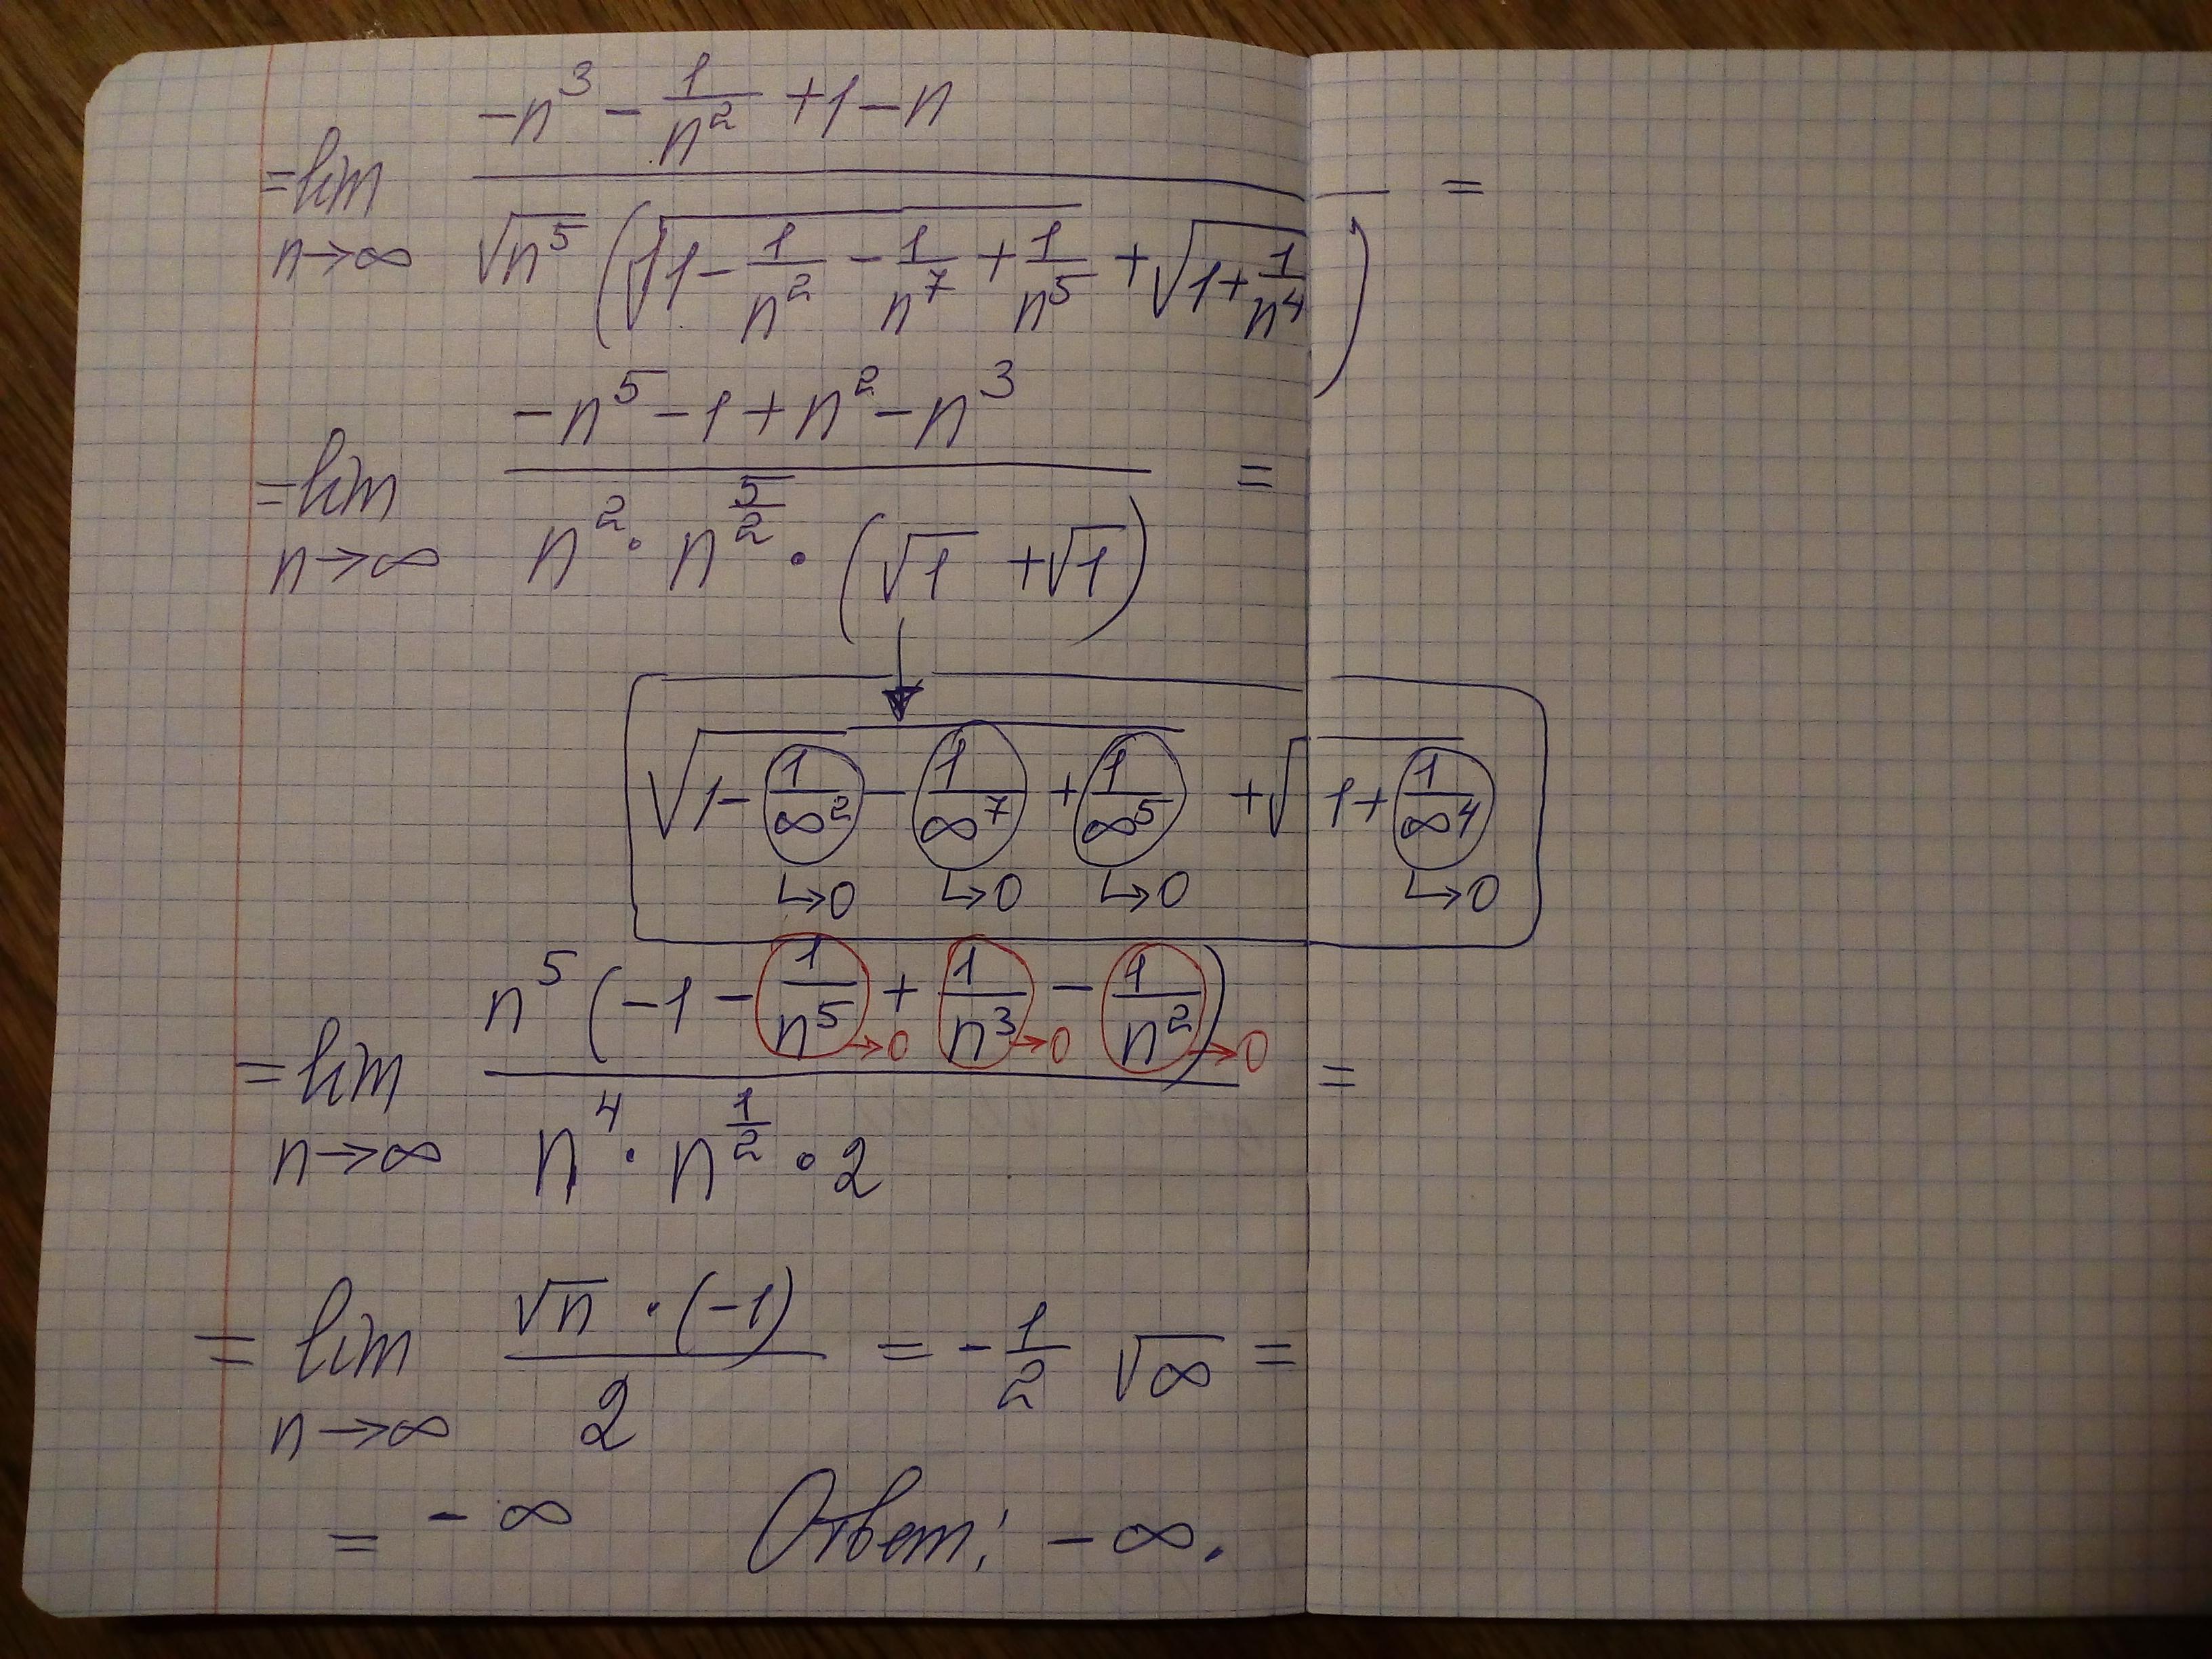 = lim n→∞ (-n³ - 1/n² + 1 - n) / (√n⁵ (√(1 - 1/n² - 1/n⁷ + 1/n⁵) + √(1 + 1/n⁴))) =
= lim n→∞ (-n⁵ - 1 + n² - n³) / (n² · n^(5/2) · (√1 + √1)) =
√(1 - 1/∞² - 1/∞⁷ + 1/∞⁵) + √(1 + 1/∞⁴)
↳0 ↳0 ↳0 ↳0
= lim n→∞ n⁵ (-1 - 1/n⁵ →0 + 1/n³ →0 - 1/n² →0) / (n⁴ · n^(1/2) · 2) =
= lim n→∞ (√n · (-1)) / 2 = - 1/2 √∞ =
= - ∞ Ответ: - ∞.